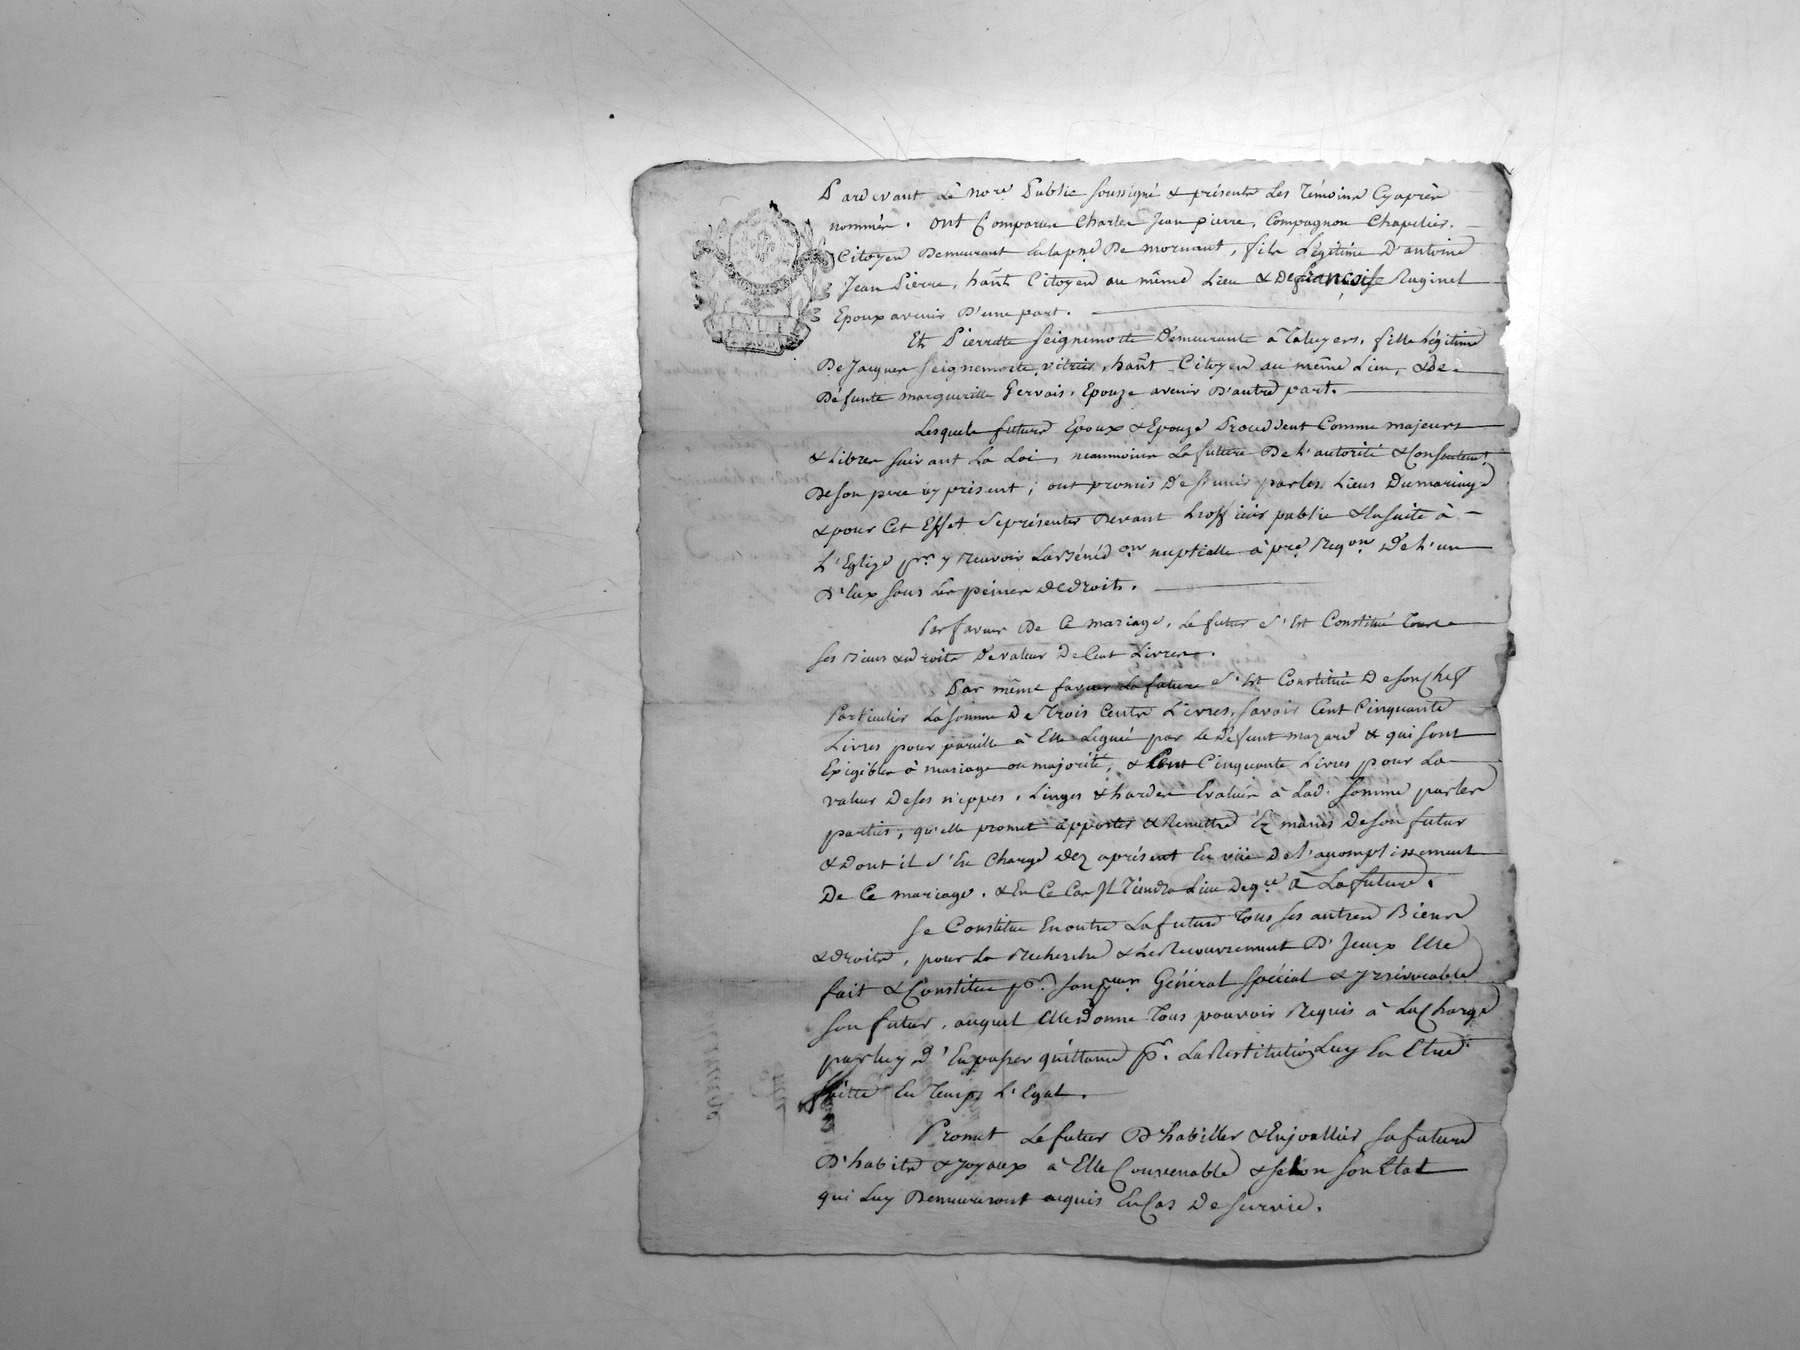 Pardevant Le Nore Public soussigné & présents Les Témoins Cyaprès
nommés. ont Comparu Charles Jean pierre, Compagnon Chapelier.
Citoyen Demeurant De mornant, fils Légitime D'antoine
Jean Pierre, hant Citoyen au même Lieu & De françoise Raginel
Epoux avenir D'une part.
Et Pierrette Seignemorte Demeurante à Taluyers, fille Légitime
De Jacques Seignemorte, hant Citoyen au même Lieu, & de
Défunte margueritte Gervais, Epouze avenir D'autre part.
Lesquels futurs Epoux & Epouze Procedent Comme majeurs
& Libres suivant La Loi, neanmoins La future De L'autorité & Consentemt
De son pere icy présent; ont promis De S'unir par les Liens Du mariage
& pour Cet Effet Se présenter Devant L'officier public & Ensuite à
L'Eglize pr. y Recevoir La Bénédon. nuptialle à pre. Reqon. De L'un
D'Eux sous Les peines De droits.
Par faveur De Ce mariage, Le futur S'Est Constitué Tous
ses Biens & droits De valeur De Cent Livres.
Par même faveur La future S'Est Constitué De son Chef
Particulier La somme De Trois Cents Livres, savoir Cent Cinquante
Livres pour pareille à Elle Leguée par le Défunt mazard & qui sont
Exigibles à mariage ou majorité, & Cent Cinquante Livres pour La
valeur De ses nippes, Linges & hardes Evalués à Lad. somme par les
parties, qu'elle promet apporter & Remettre Ez mains De son futur
& Dont il S'En Charge Dez aprésent En vüe De L'accomplissement
De Ce mariage. & En Ce Cas Jl Tiendra Lieu De qce à La future.
Se Constitue En outre La future Tous ses autres Biens
& droits, pour La Recherche & Le Recouvrement D'Jceux Elle
fait & Constitue pr. son Général spécial & jrrévocable
son futur, auquel Elle Donne Tous pouvoir Requis à La Charge
par Luy D'En passer quittance pr. La Restitution Luy En Etre
faitte En Temps L'Egal.
Promet Le futur D'habiller & Enjoallier sa future
D'habits & Joyaux à Elle Convenable & selon son Etat
qui Luy Demeureront acquis En Cas De survie.